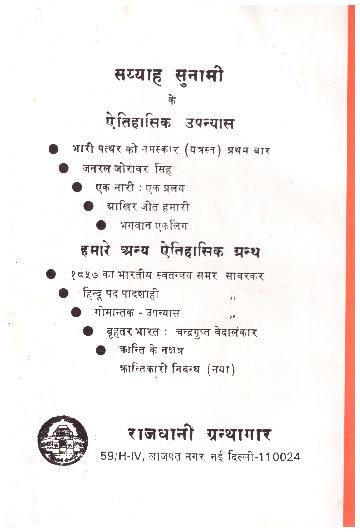 सय्याह सुनामी
के
ऐतिहासिक उपन्यास
भारी पत्थर को नमस्कार (यत्रस्त) प्रथम बार
जनरल जोरावर सिंह
एक नारी : एक प्रलय
आखिर जीत हमारी
भगवान एकलिंग
हमारे अन्य ऐतिहासिक ग्रन्थ
१८५७ का भारतीय स्वतन्त्रय समर सावरकर
हिन्दू पद पादशाही ,,
गोमान्तक - उपन्यास ,,
बृहतर भारत : चन्द्रगुप्त वेदालंकार
क्रान्ति के नक्षत्र
क्रान्तिकारी निबन्ध (नया)
राजधानी ग्रन्थागार
59/H-IV, लाजपत नगर नई दिल्ली-110024